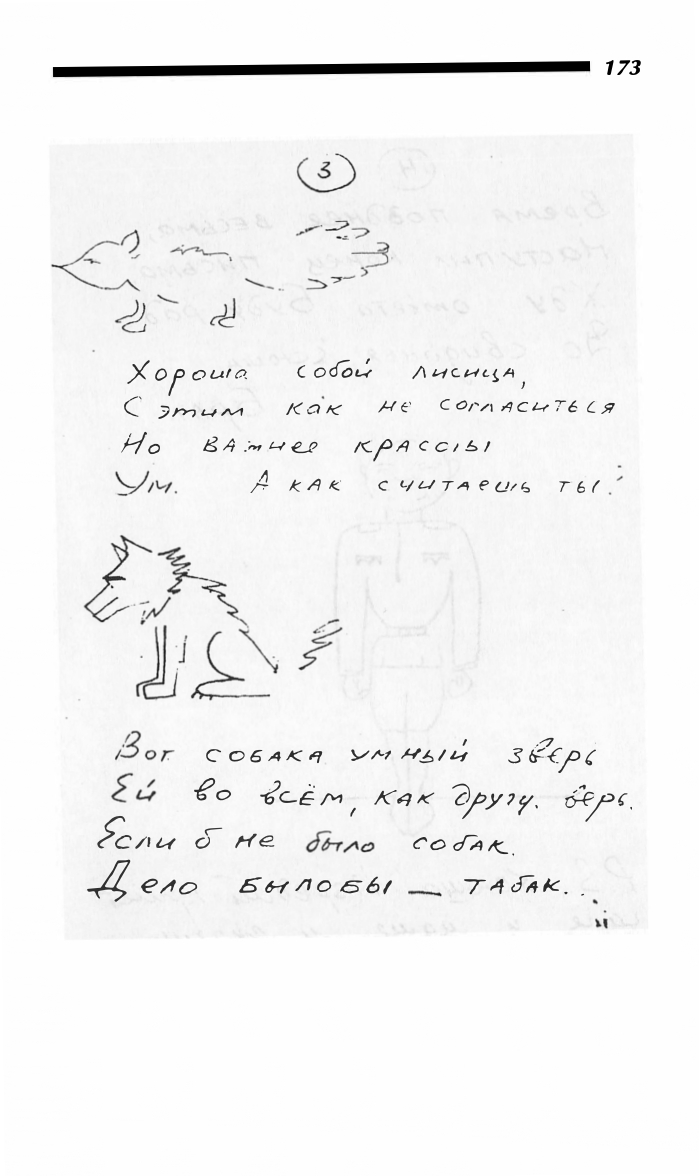 173
3
Хороша собой лисица,
С этим как не согласиться
Но важнее крассы
Ум. А как считаешь ты?
Вот собака умный зверь
Ей во всём, как другу. верь.
Если б не было собак.
Дело былобы — табак...